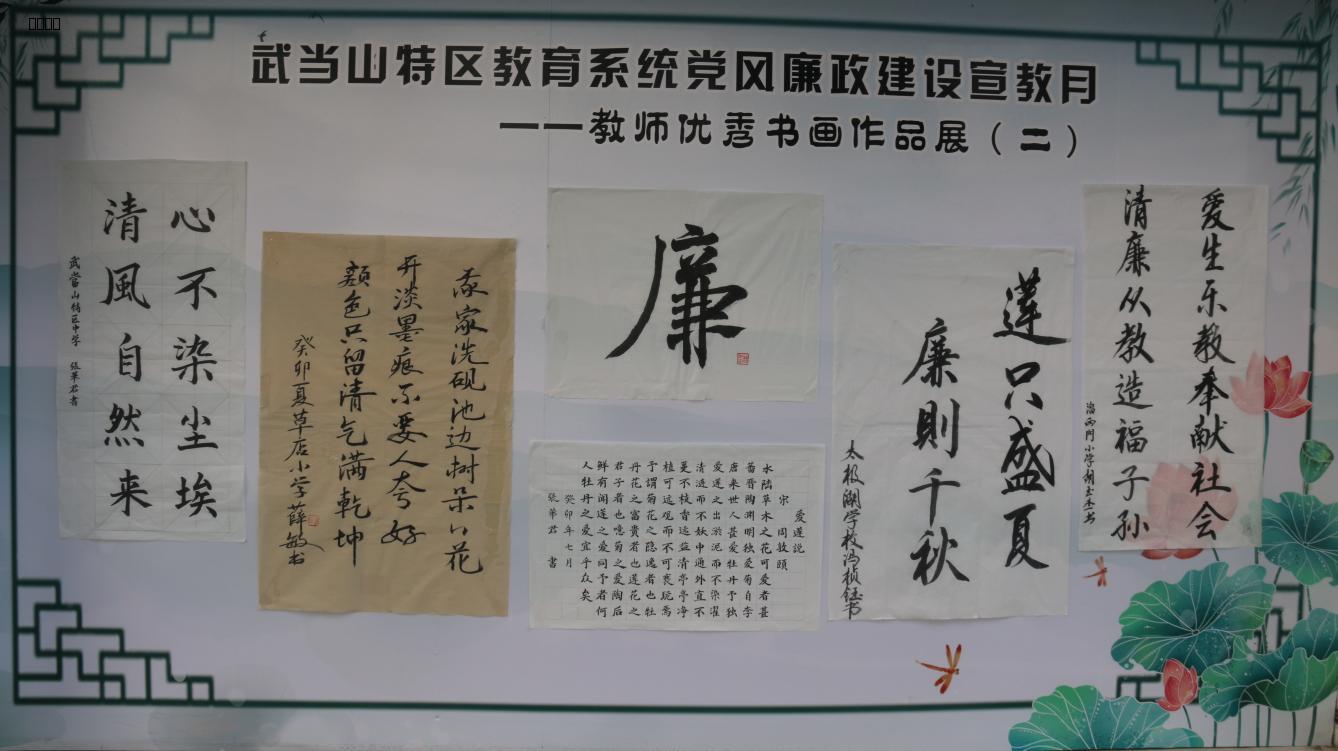 武当山特区教育系统党风廉政建设宣教月
——教师优秀书画作品展（二）
心不染尘埃
清風自然来
武當山特区中学 張華君書
吾家洗砚池边树朵朵花
开淡墨痕不要人夸好
颜色只留清气满乾坤
癸卯夏草店小学薛敏书
廉
爱莲説
宋 周敦頤
水陆草木之花可爱者甚
蕃晋陶渊明独爱菊自李
唐来世人甚爱牡丹予独
爱莲之出淤泥而不染濯
清涟而不妖中通外直不
蔓不枝香远益清亭亭净
植可远观而不可亵玩焉
予谓菊花之隐逸者也牡
丹花之富貴者也莲花之
君子者也噫菊之爱陶后
鲜有闻莲之爱同予者何
人牡丹之爱宜乎众矣
癸卯年七月
張華君 書
蓮只盛夏
廉則千秋
太极湖学校冯桢钰书
爱生乐教奉献社会
清廉从教造福子孙